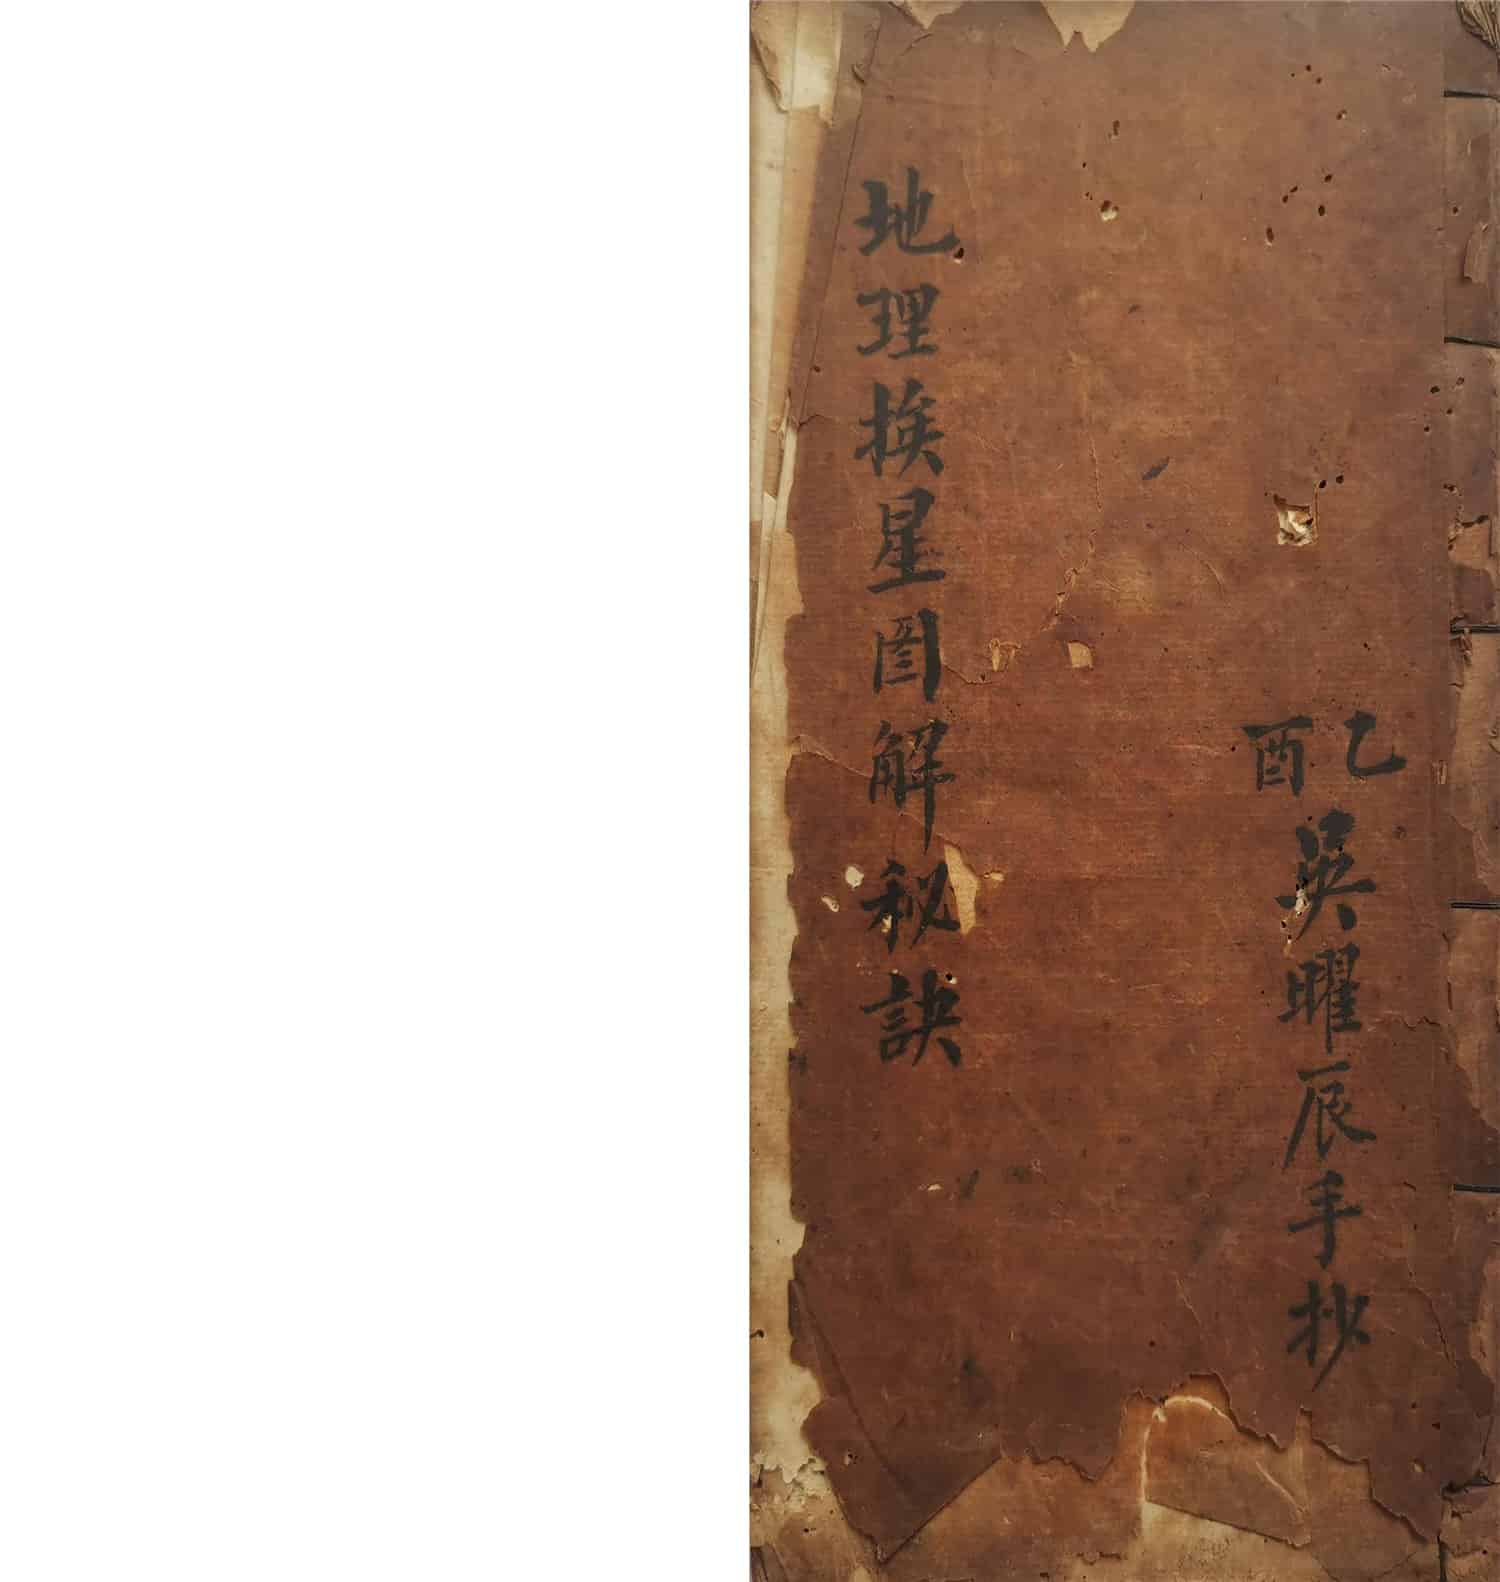 乙酉
吳曜辰手抄
地理挨星圖解秘訣